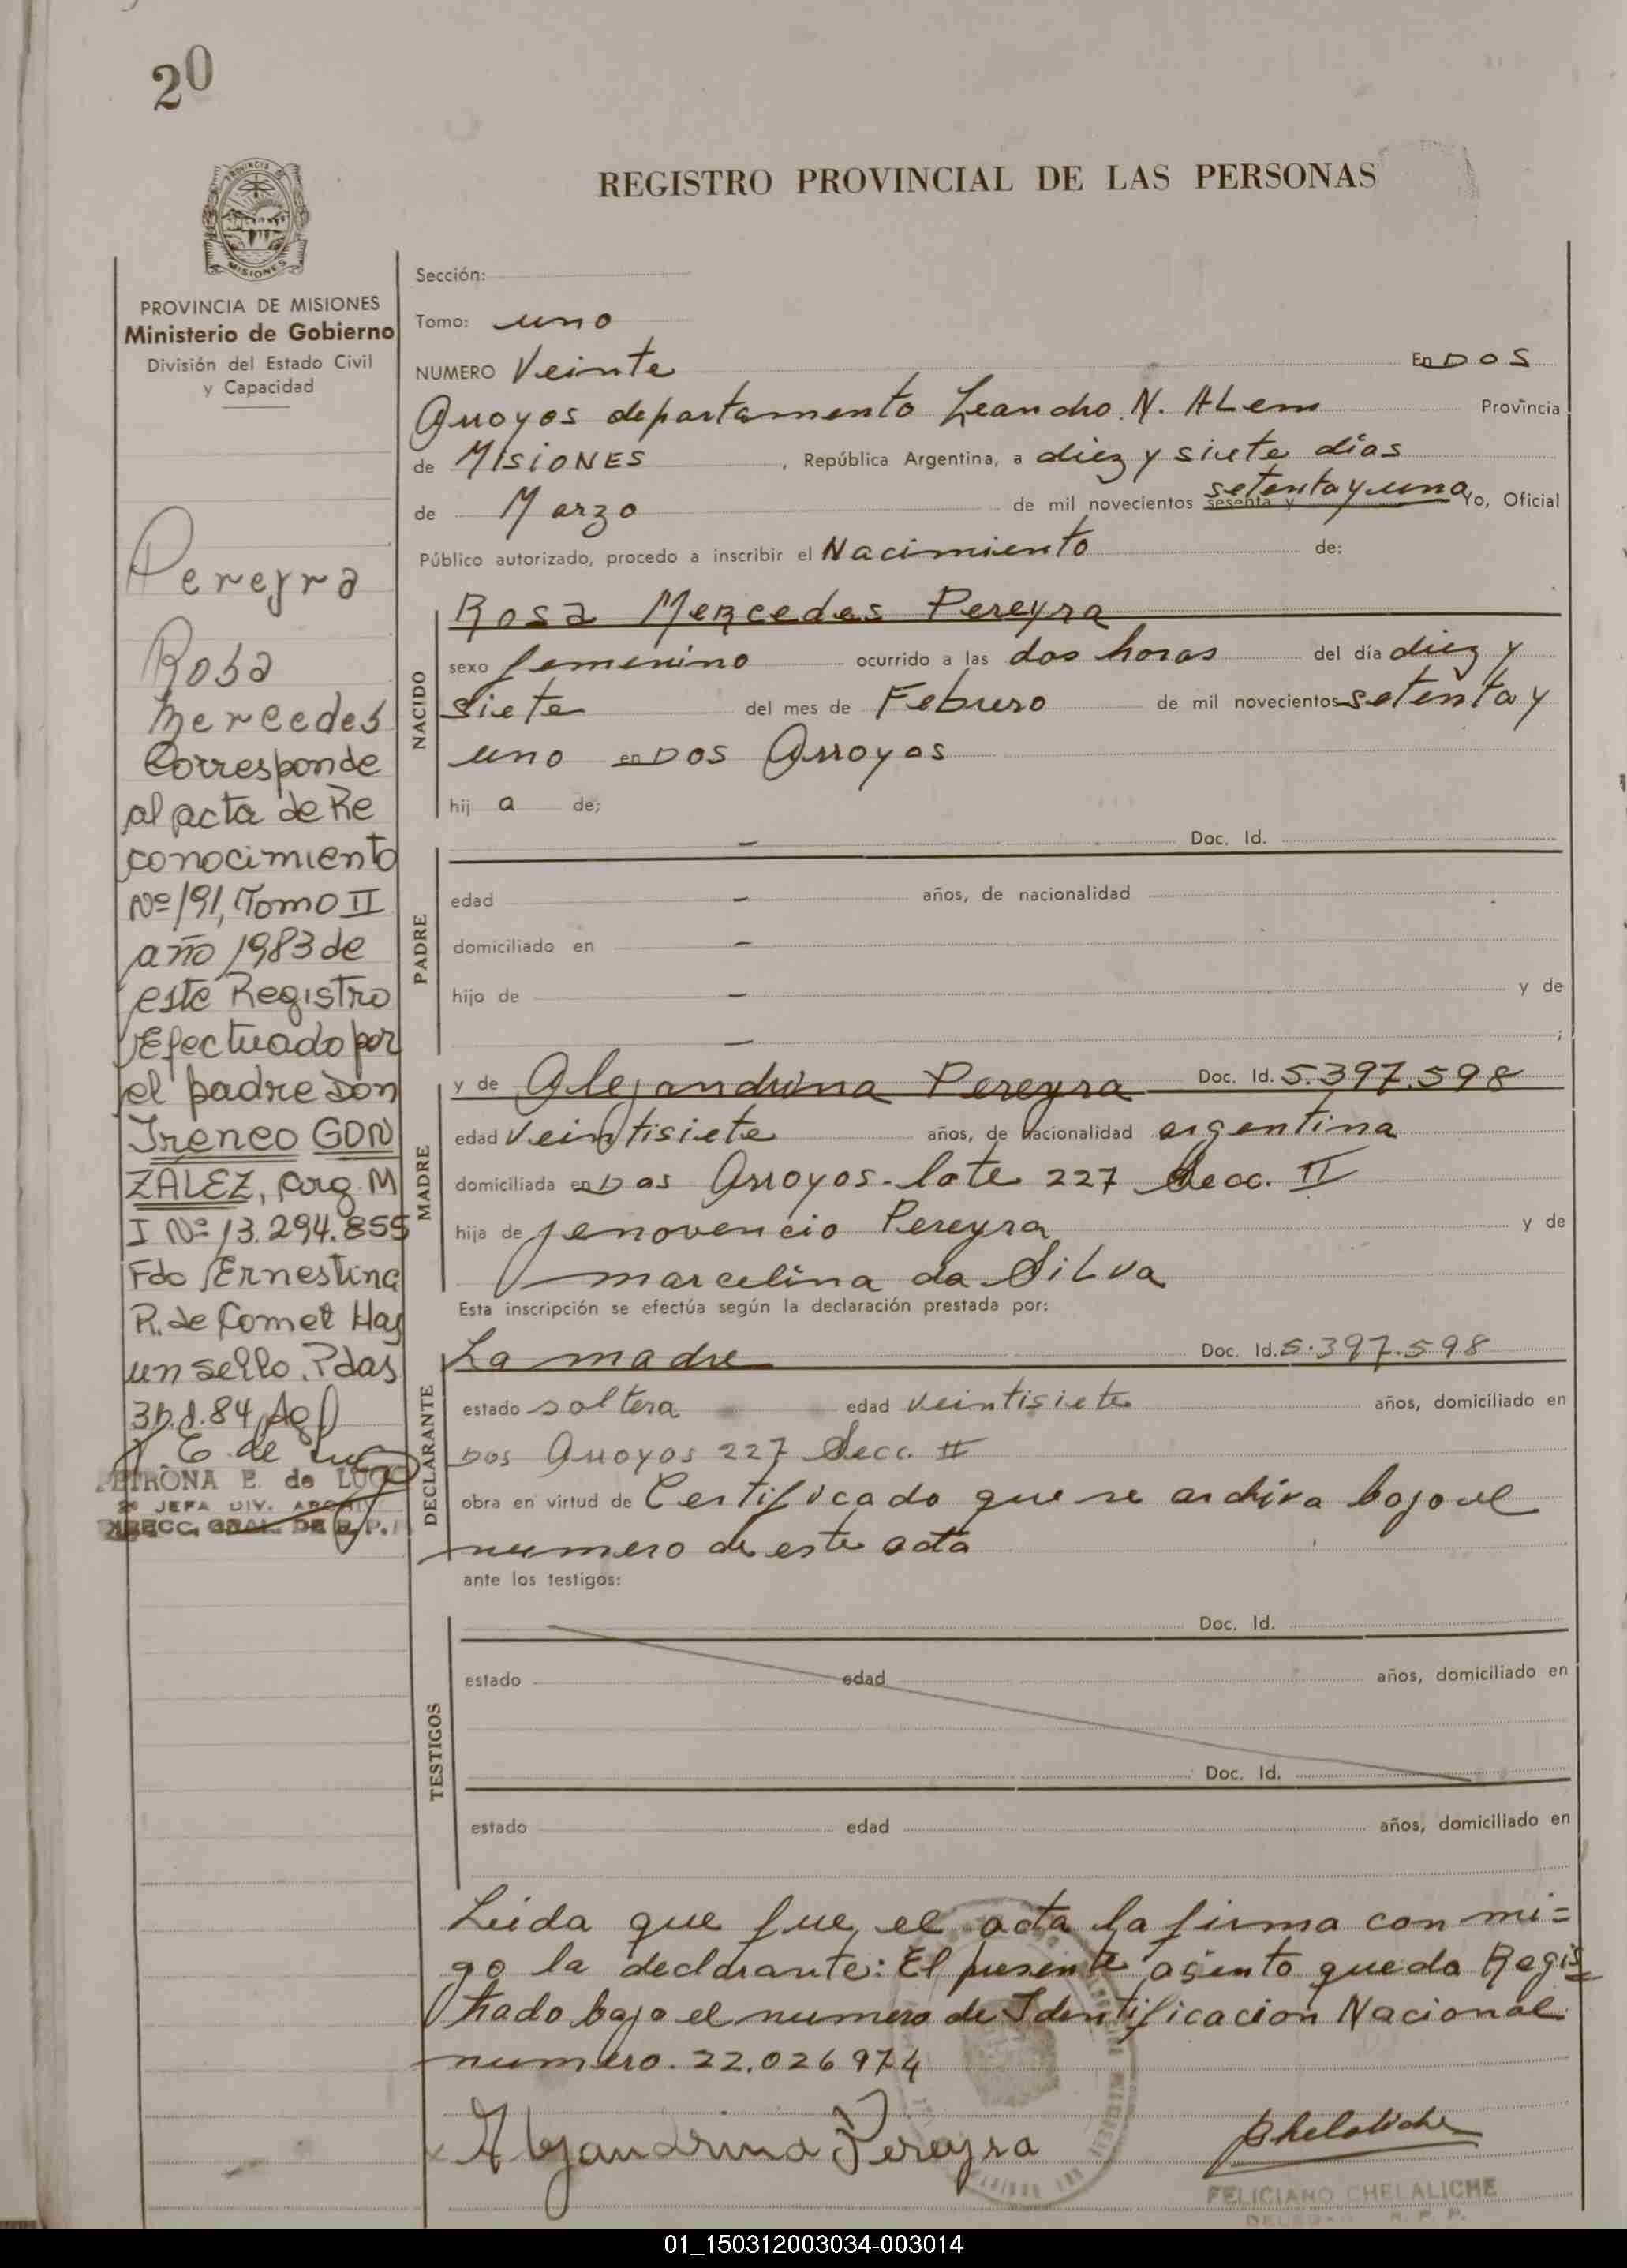 20
PROVINCIA
MISIONES
REGISTRO PROVINCIAL DE LAS PERSONAS
PROVINCIA DE MISIONES
Ministerio de Gobierno
División del Estado Civil
y Capacidad
Pereyra
Rosa
Mercedes
Corresponde
al acta de Re
conocimiento
Nº 191, Tomo II
año 1983 de
este Registro
Efectuado por
el padre Don
Ireneo GON
ZÁLEZ, arg. M
I Nº 13.294.855
Fdo Ernestina
R. de Comet Hay
un sello. Pdas
E. de Lugo
PETRONA E. de LUGO
JEFA DIV. ARCHIVO
DIRECC. GRAL. DE R. P. P.
Sección:
Tomo: uno
NUMERO Veinte En DOS
Arroyos departamento Leandro. N. ALem Provincia
de MISIONES , República Argentina, a diez y siete días
de Marzo de mil novecientos sesenta y setenta y uno Yo, Oficial
Público autorizado, procedo a inscribir el Nacimiento de:
NACIDO
Rosa Mercedes Pereyra
sexo femenino ocurrido a las dos horas del día diez y
siete del mes de Febrero de mil novecientos setenta y
uno en DOS Arroyos
hij a de;
PADRE
— Doc. Id.
edad — años, de nacionalidad
domiciliado en —
hijo de — y de
— ;
MADRE
y de Alejandrina Pereyra Doc. Id. 5.397.598
edad veintisiete años, de nacionalidad argentina
domiciliada en Dos Arroyos - lote 227 Secc. II
hija de Jenovencio Pereyra y de
marcelina da SiLva
Esta inscripción se efectúa según la declaración prestada por:
DECLARANTE
La madre Doc. Id. 5.397.598
estado soltera edad veintisiete años, domiciliado en
Dos Arroyos 227 Secc. II
obra en virtud de Certificado que se archiva bajo el
numero de este acta
ante los testigos:
TESTIGOS
Doc. Id.
estado edad años, domiciliado en
Doc. Id.
estado edad años, domiciliado en
Leida que fue el acta la firma con mi=
go la declarante: El presente asento queda Regis=
trado bajo el numero de Identificacion Nacional
numero. 22.026974
Alejandrina Pereyra
Chelaliche
FELICIANO CHELALICHE
R. P. P.
01_150312003034-003014